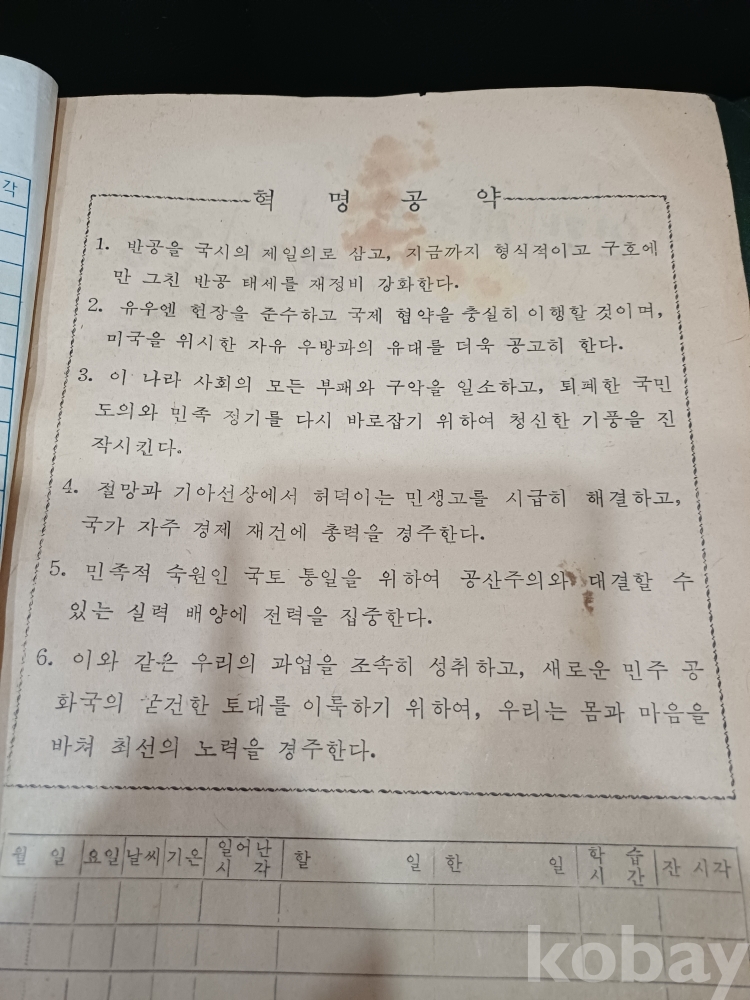 각
혁 명 공 약
1. 반공을 국시의 제일의로 삼고, 지금까지 형식적이고 구호에
만 그친 반공 태세를 재정비 강화한다.
2. 유우엔 헌장을 준수하고 국제 협약을 충실히 이행할 것이며,
미국을 위시한 자유 우방과의 유대를 더욱 공고히 한다.
3. 이 나라 사회의 모든 부패와 구악을 일소하고, 퇴폐한 국민
도의와 민족 정기를 다시 바로잡기 위하여 청신한 기풍을 진
작시킨다.
4. 절망과 기아선상에서 허덕이는 민생고를 시급히 해결하고,
국가 자주 경제 재건에 총력을 경주한다.
5. 민족적 숙원인 국토 통일을 위하여 공산주의와 대결할 수
있는 실력 배양에 전력을 집중한다.
6. 이와 같은 우리의 과업을 조속히 성취하고, 새로운 민주 공
화국의 굳건한 토대를 이룩하기 위하여, 우리는 몸과 마음을
바쳐 최선의 노력을 경주한다.
월 일 요일 날씨 기온 일어난 시 각 할 일 한 일 학 습 시 간 잔 시각
kobay